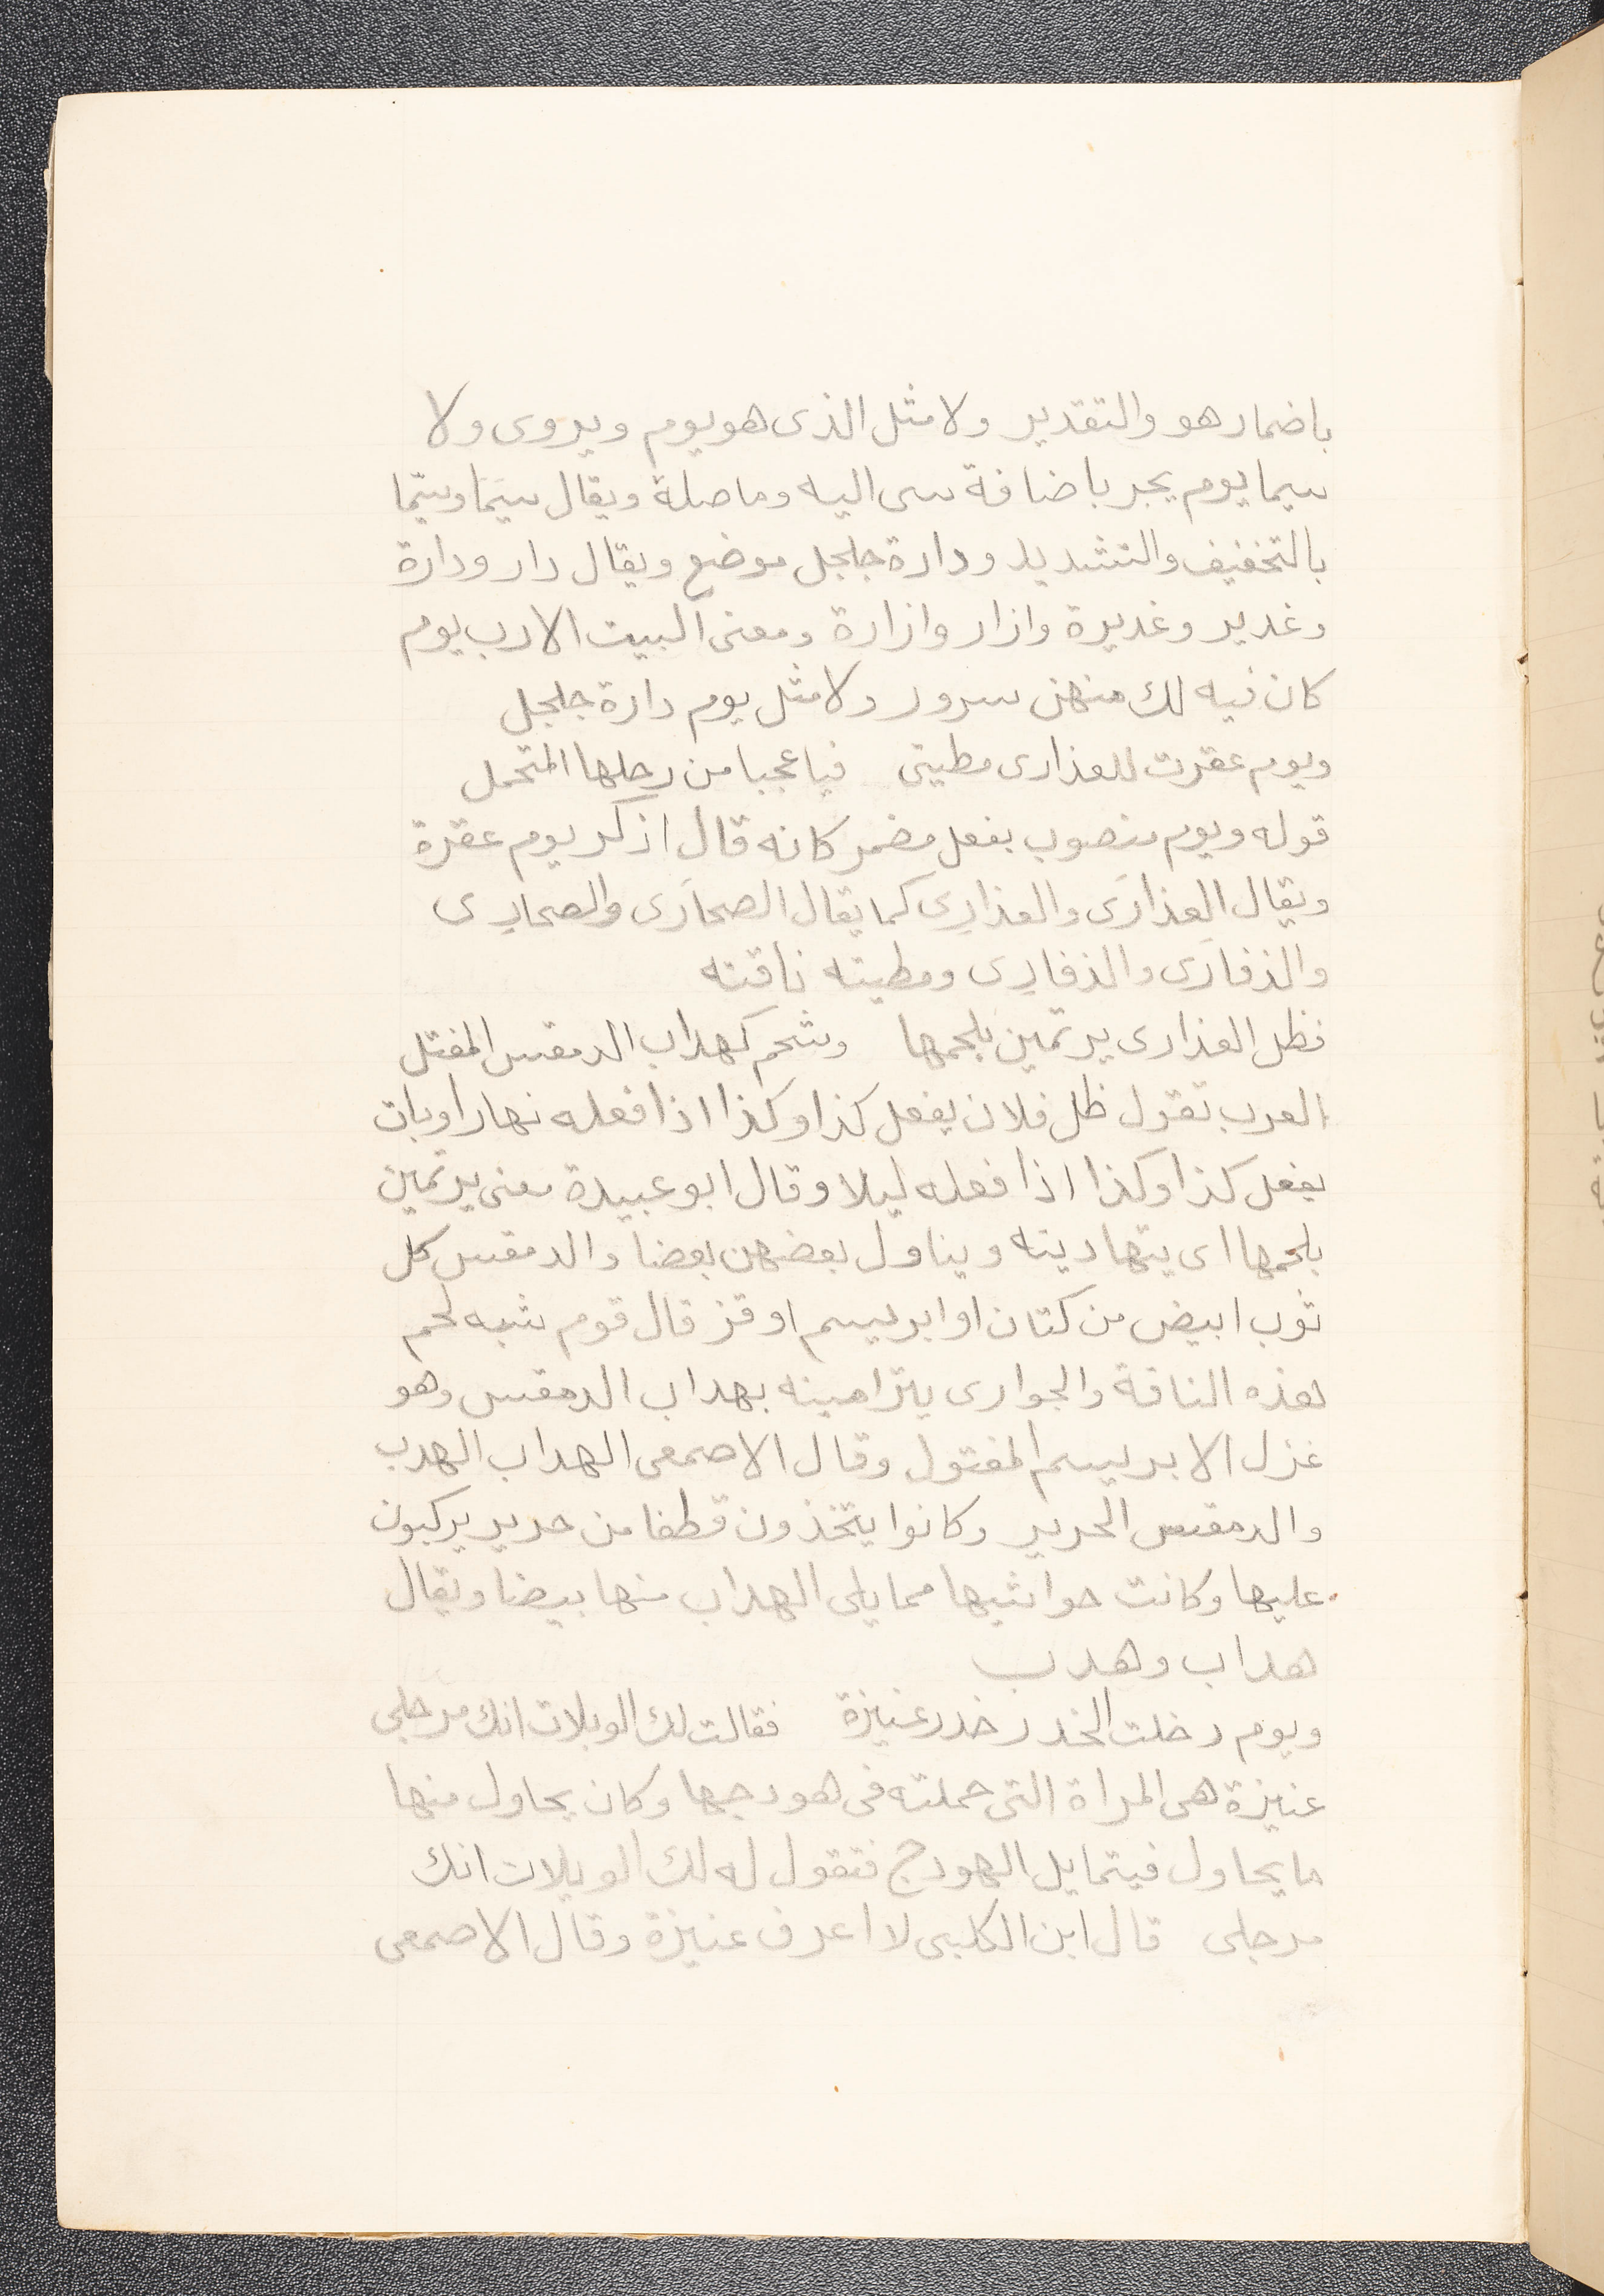 باضمار هو والتقدير ولا مثل الذى هو يوم ويروى ولا
سيما يوم يجر باضافة سى اليه وما صلة ويقال سيَما وسيّما
بالتخفيف والتشديد ودارة جلجل موضع ويقال دار ودارة
وغدير وغديرة وازار وازارة ومعنى البيت الارب يوم
كان فيه لك منهن سرور ولا مثل يوم دارة جلجل
ويوم عقرت للعذارى مطيتى فيا عجبا من رحلها المتحمل
قوله ويوم منصوب بفعل مضمر كانه قال اذكر يوم عقرة
ويقال العذارَى والعذارِى كما يقال الصحارَى والصحارِى
والذفارَى والذفارِى ومطيته ناقته
فظل العذارى يرتمين بلحمها وشحم كهداب الدمقس المفتل
العرب تقول ظل فلان يفعل كذا وكذا اذا فعله نهارا وبات
يفعل كذا وكذا اذا فعله ليلا وقال ابو عبيدة معنى يرتمين
بلحمها اى يتهادينه ويناول بعضهن بعضا والدمقس كل
ثوب ابيض من كتان او ابريسم او قز قال قوم شبه لحم
هذه الناقة والجوارى يترامينه بهداب الدمقس وهو
غزل الابريسم المفتول وقال الاصمعى الهداب الهدب
والدمقس الحرير وكانوا يتخذون قطفا من حرير يركبون
عليها وكانت حواشيها مما يلى الهداب منها بيضا ويقال
هداب وهدب
ويوم دخلت الخدر خدر عنيزة فقالت لك الويلات انك مرجلى
عنيزة هى المراة التى حملته فى هودجها وكان يحاول منها
ما يحاول فيتمايل الهودج فتقول له لك الويلات انك
مرجلى قال ابن الكلبى لا اعرف عنيزة وقال الاصمعى